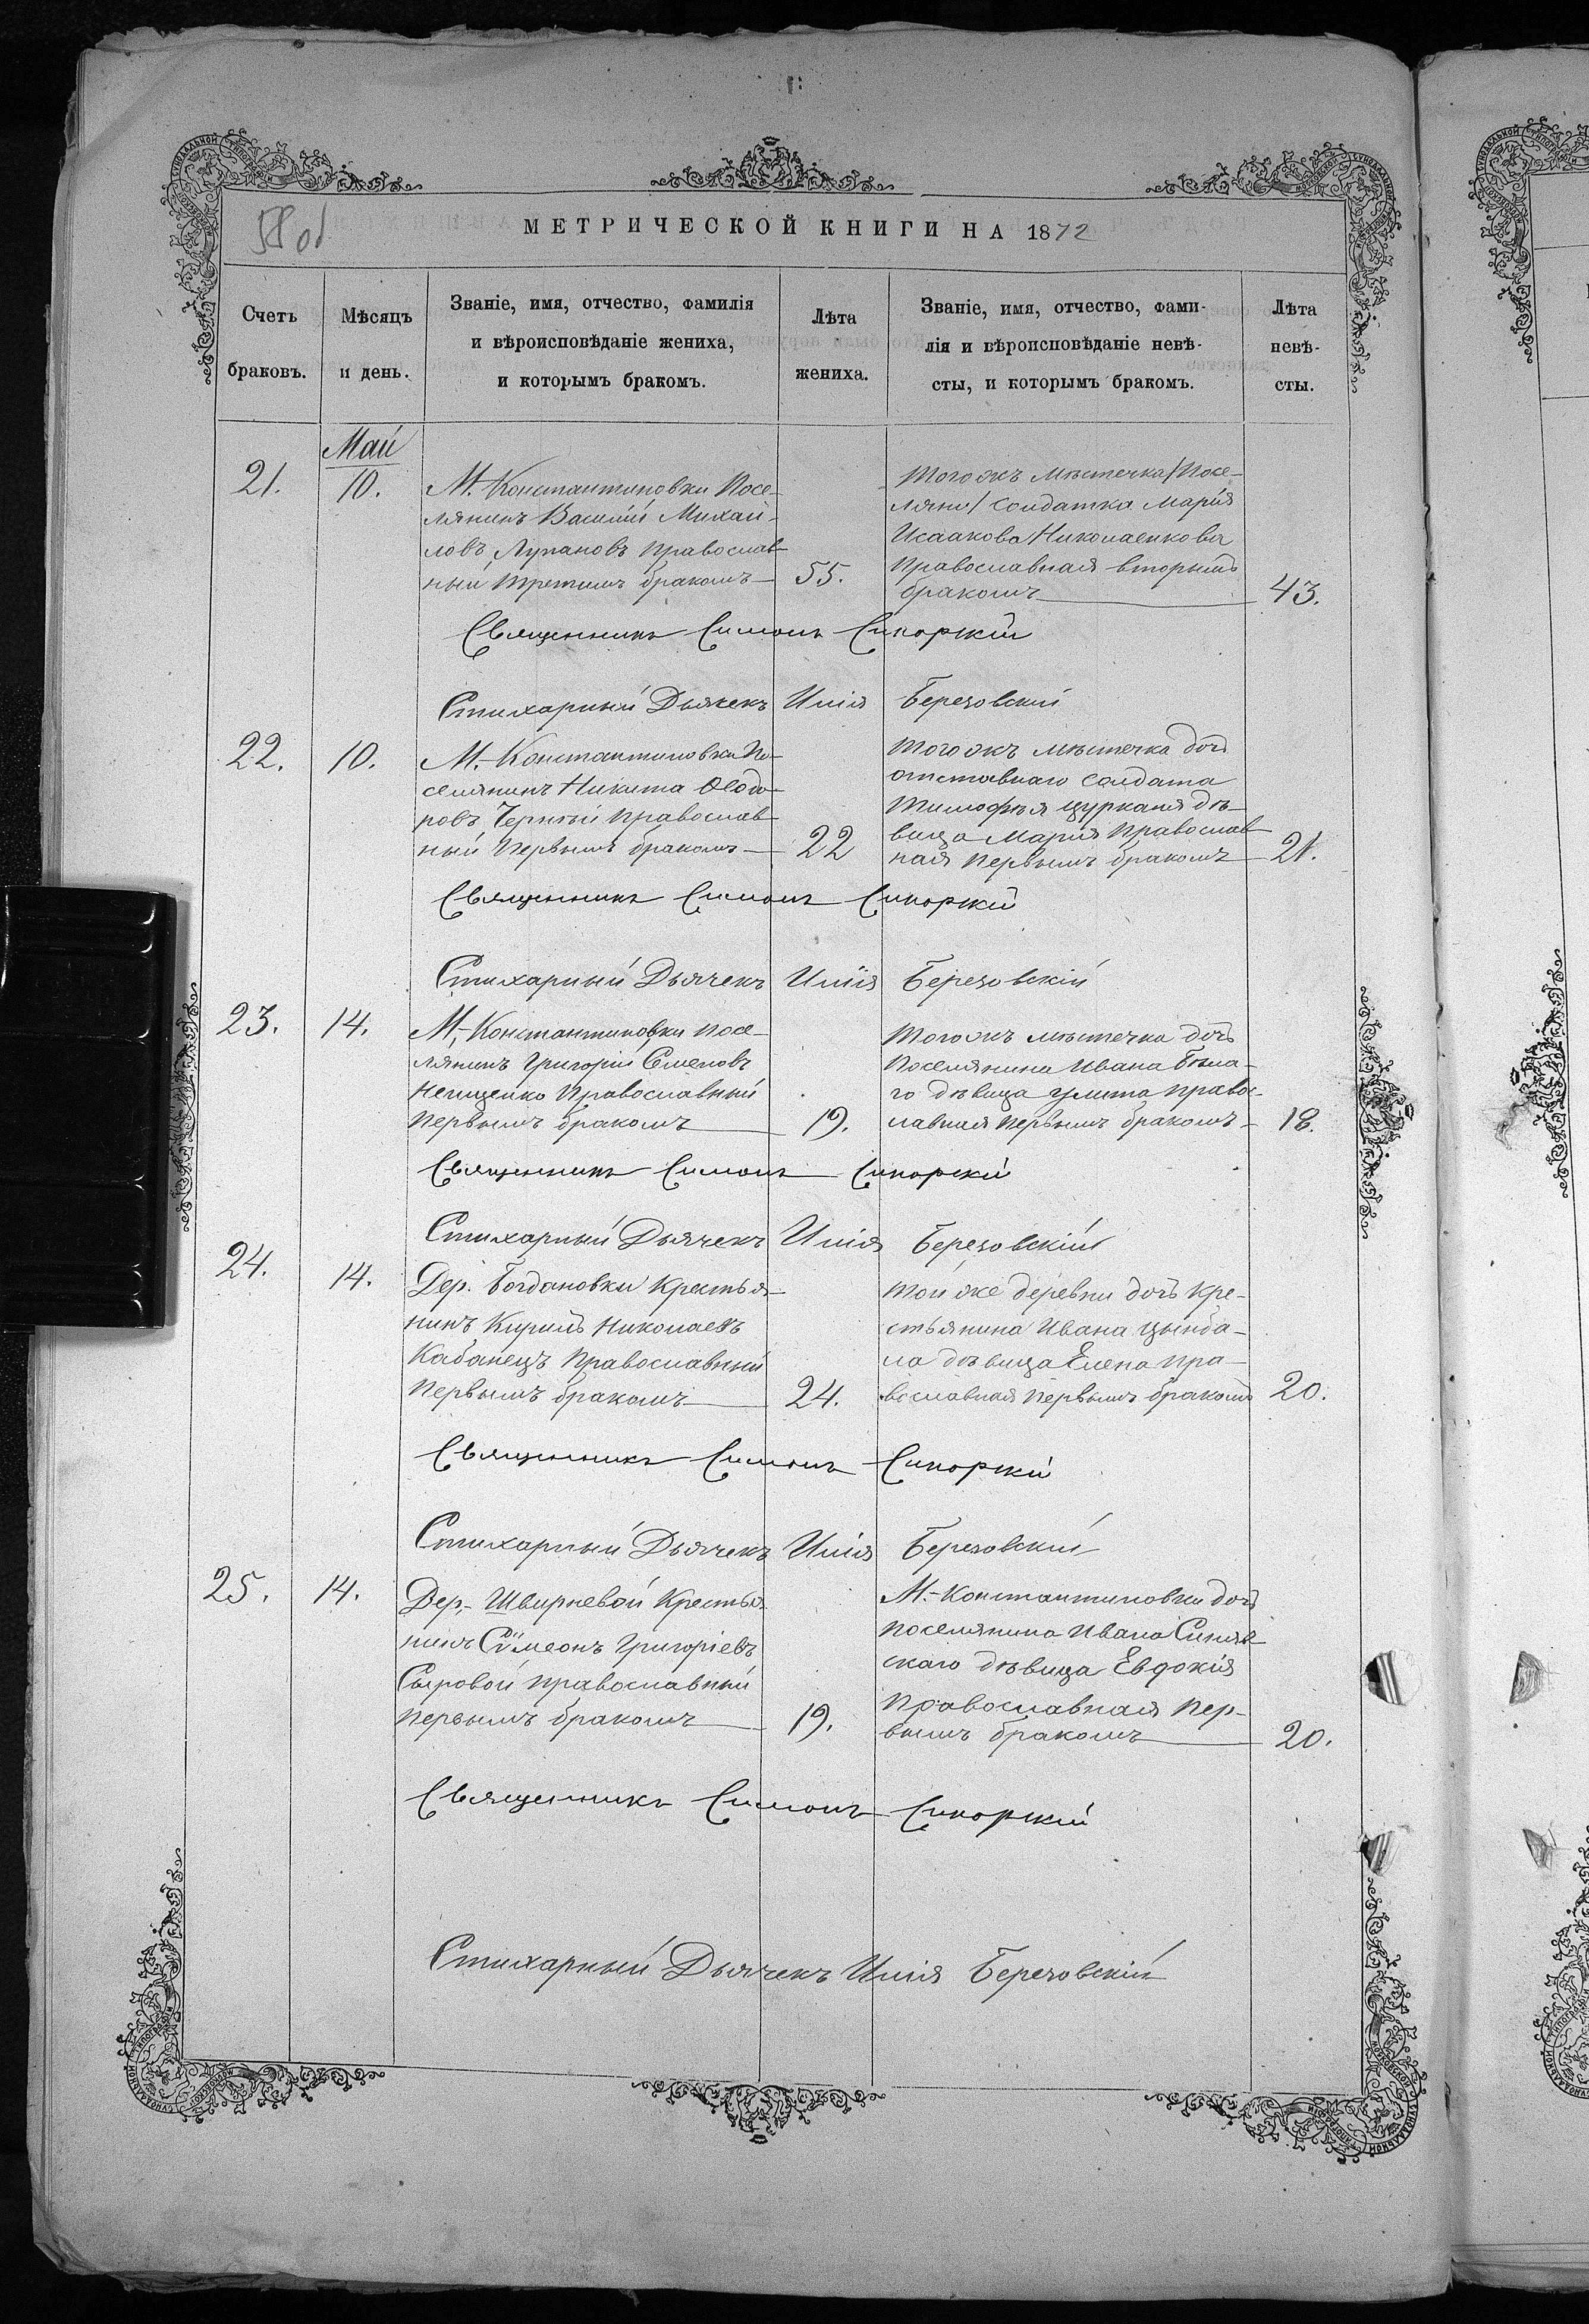 58 об
МЕТРИЧЕСКОЙ КНИГИ НА 1872
Счетъ браковъ.
Мѣсяцъ и день.
Званіе, имя, отчество, фамилія
и вѣроисповѣданіе жениха,
и которымъ бракомъ.
Лѣта жениха.
Званіе, имя, отчество, фами-
лія и вѣроисповѣданіе невѣ-
сты, и которымъ бракомъ.
Лѣта невѣ-
сты.
Май
21.
10.
М. Константиновки Посе-
лянинъ Василій Михай-
ловъ Лупановъ Православ-
ный третимъ бракомъ
55.
Того жъ мѣстечка /Посе-
лянк/ солдатка Марія
Исаакова Николаенкова
Православная вторымъ
бракомъ
43.
Священникъ Симонъ Сикорскій
Стихарный Дьячекъ Илія Березовскій
22.
10.
М. Константиновки По-
селянинъ Никита Ѳеодо-
ровъ Черный Православ-
ный Первымъ бракомъ
22
Того жъ мѣстечка дочь
отставнаго солдата
Тимофѣя Цурканя дѣ-
вица Марія Православ-
ная Первымъ бракомъ
21.
Священникъ Симонъ Сикорскій
Стихарный Дьячекъ Илія Березовскій
23.
14.
М. Константиновки Посе-
лянинъ Григорій Семеновъ
Нещенко Православный
Первымъ бракомъ
19.
Того жъ мѣстечка дочь
Поселянина Ивана Бѣла-
го дѣвица Улита Правос-
лавная Первымъ бракомъ
18.
Священникъ Симонъ Сикорскій
Стихарный Дьячекъ Илія Березовскій
24.
14.
Дер. Богдановки Крестья-
нинъ Кирилъ Николаевъ
Кабанецъ Православный
Первымъ бракомъ
24.
Той же деревни дочь Кре-
стьянина Ивана Цымба-
ла дѣвица Елена Пра-
вославная Первымъ бракомъ
20.
Священникъ Симонъ Сикорскій
Стихарный Дьячекъ Илія Березовскій
25.
14.
Дер. Швырневой Крестья-
нинъ Симеонъ Григоріевъ
Сыровой Православный
Первымъ бракомъ
19.
М. Константиновки дочь
Поселянина Ивана Синяв-
скаго дѣвица Евдокія
Православная Пер-
вымъ бракомъ
20.
Священникъ Симонъ Сикорскій
Стихарный Дьячекъ Илія Березовскій